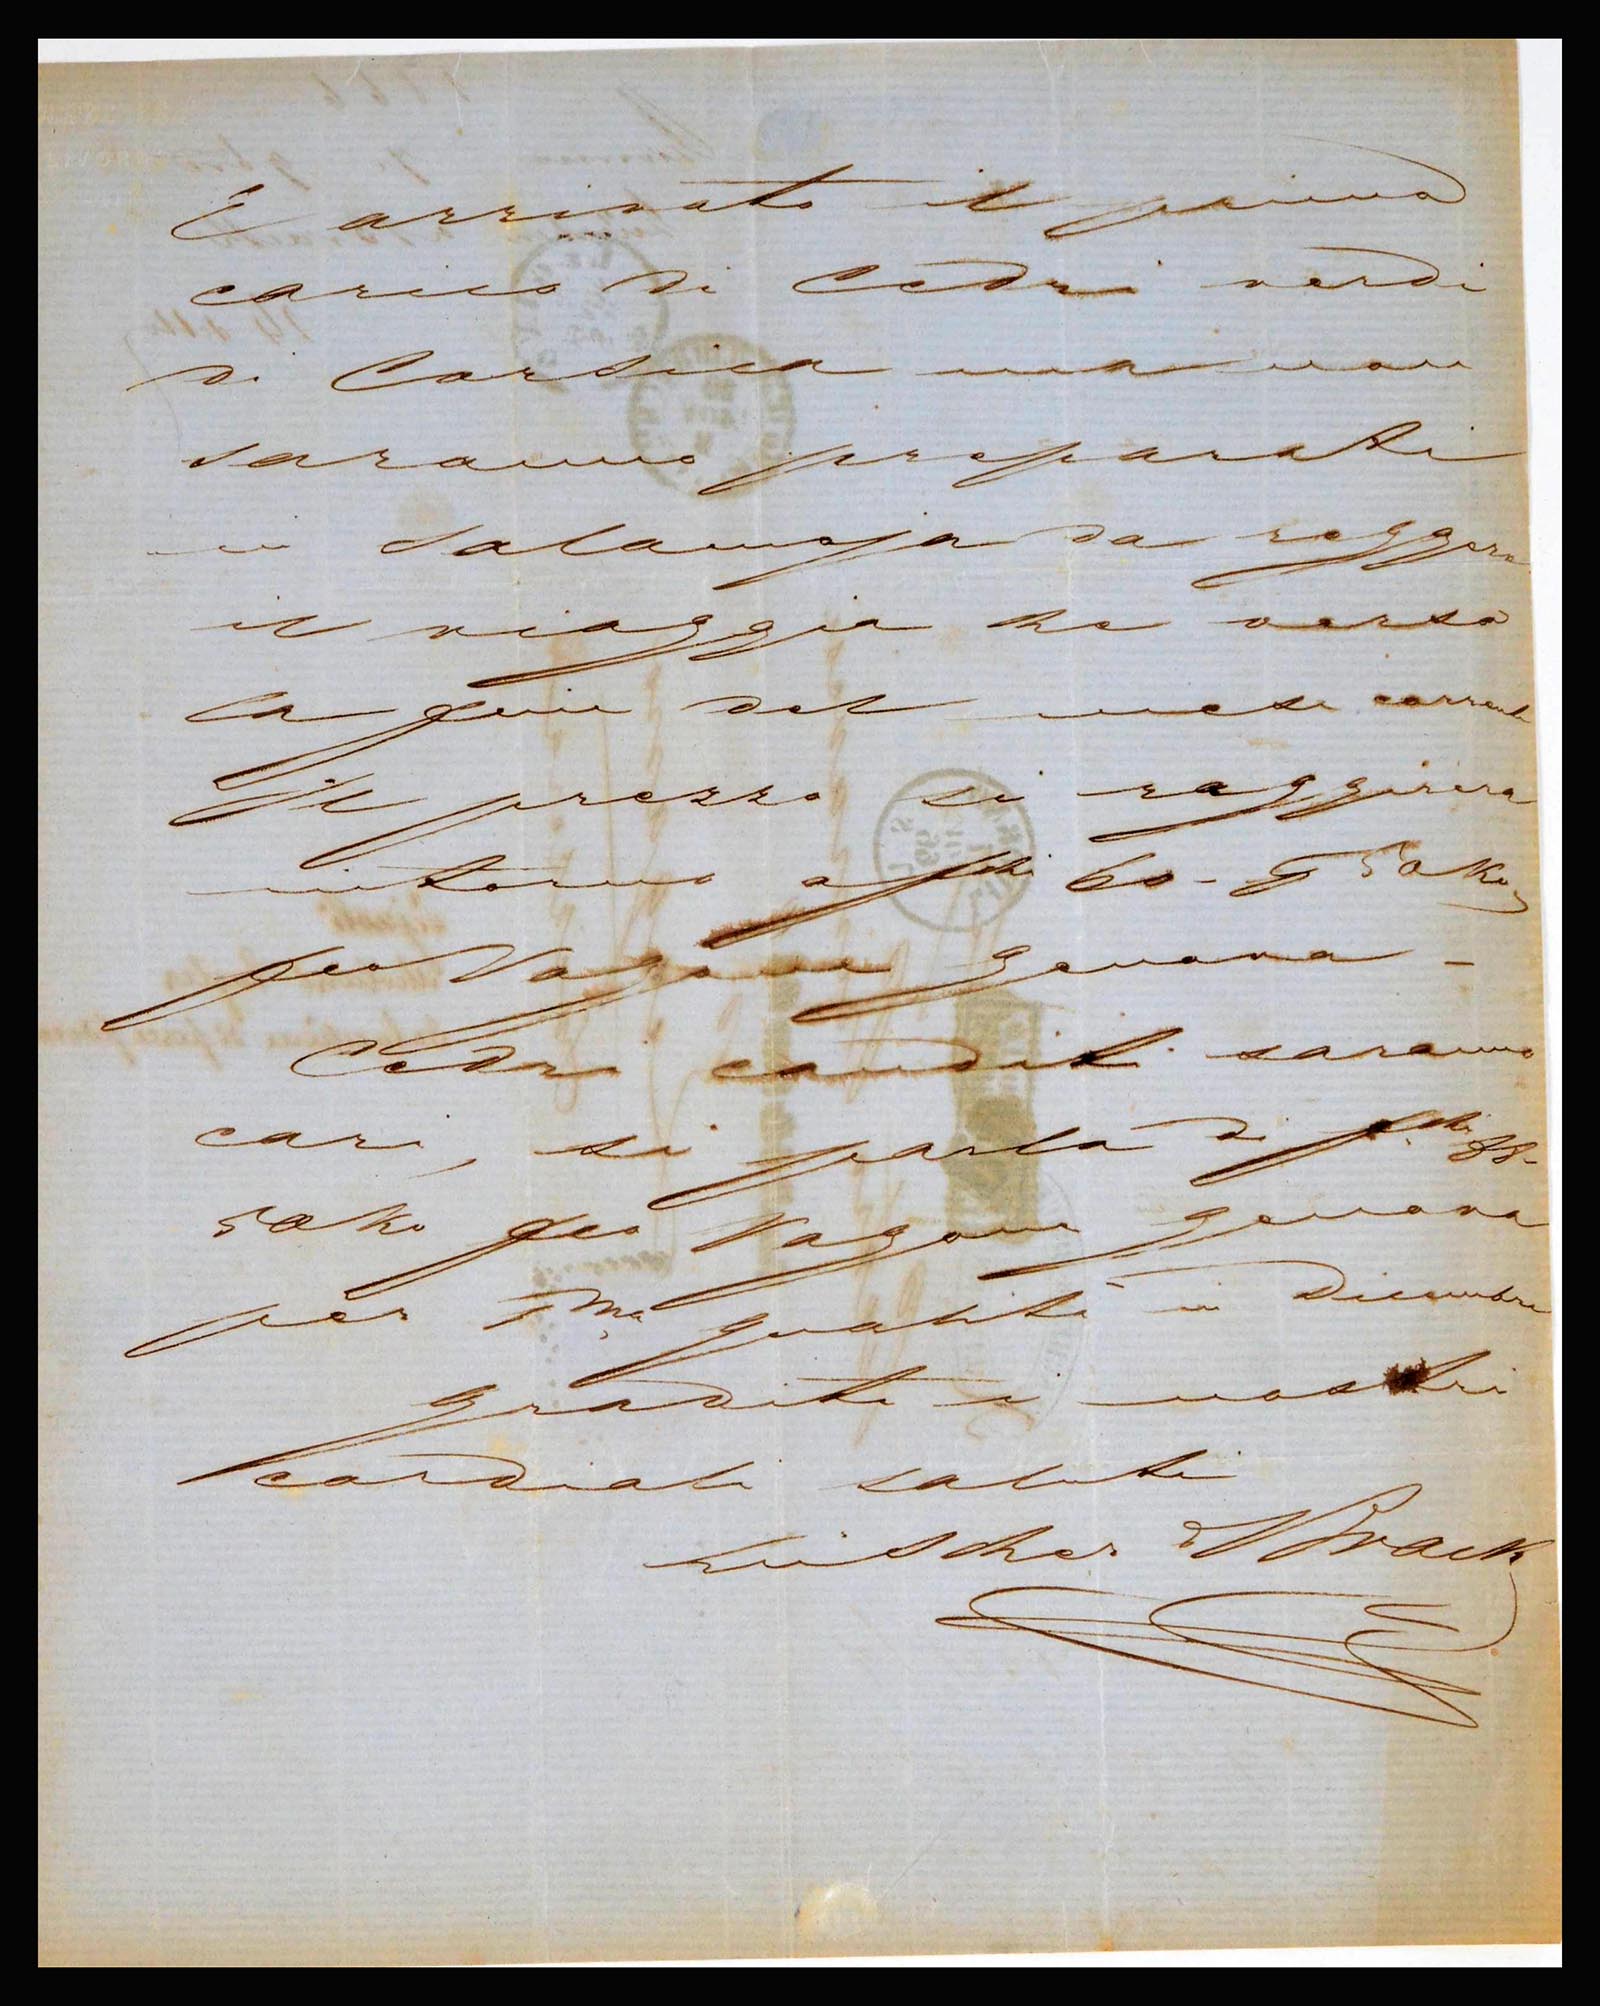 È arrivato il primo
carico di Cedri verdi
di Corsica ma non
saranno preparati
in salamoja da reggere
il viaggio che verso
la fine del mese corrente
Il prezzo si raggirera
intorno a fchi 60 - 50 Ko
fco Vagone genova -
Cedri canditi saranno
cari, si parla di fchi 88-
50 Ko fco Vagone genova
per Ima qualità in Dicembre
gradite i nostri
cordiali saluti
Lüscher & Brack